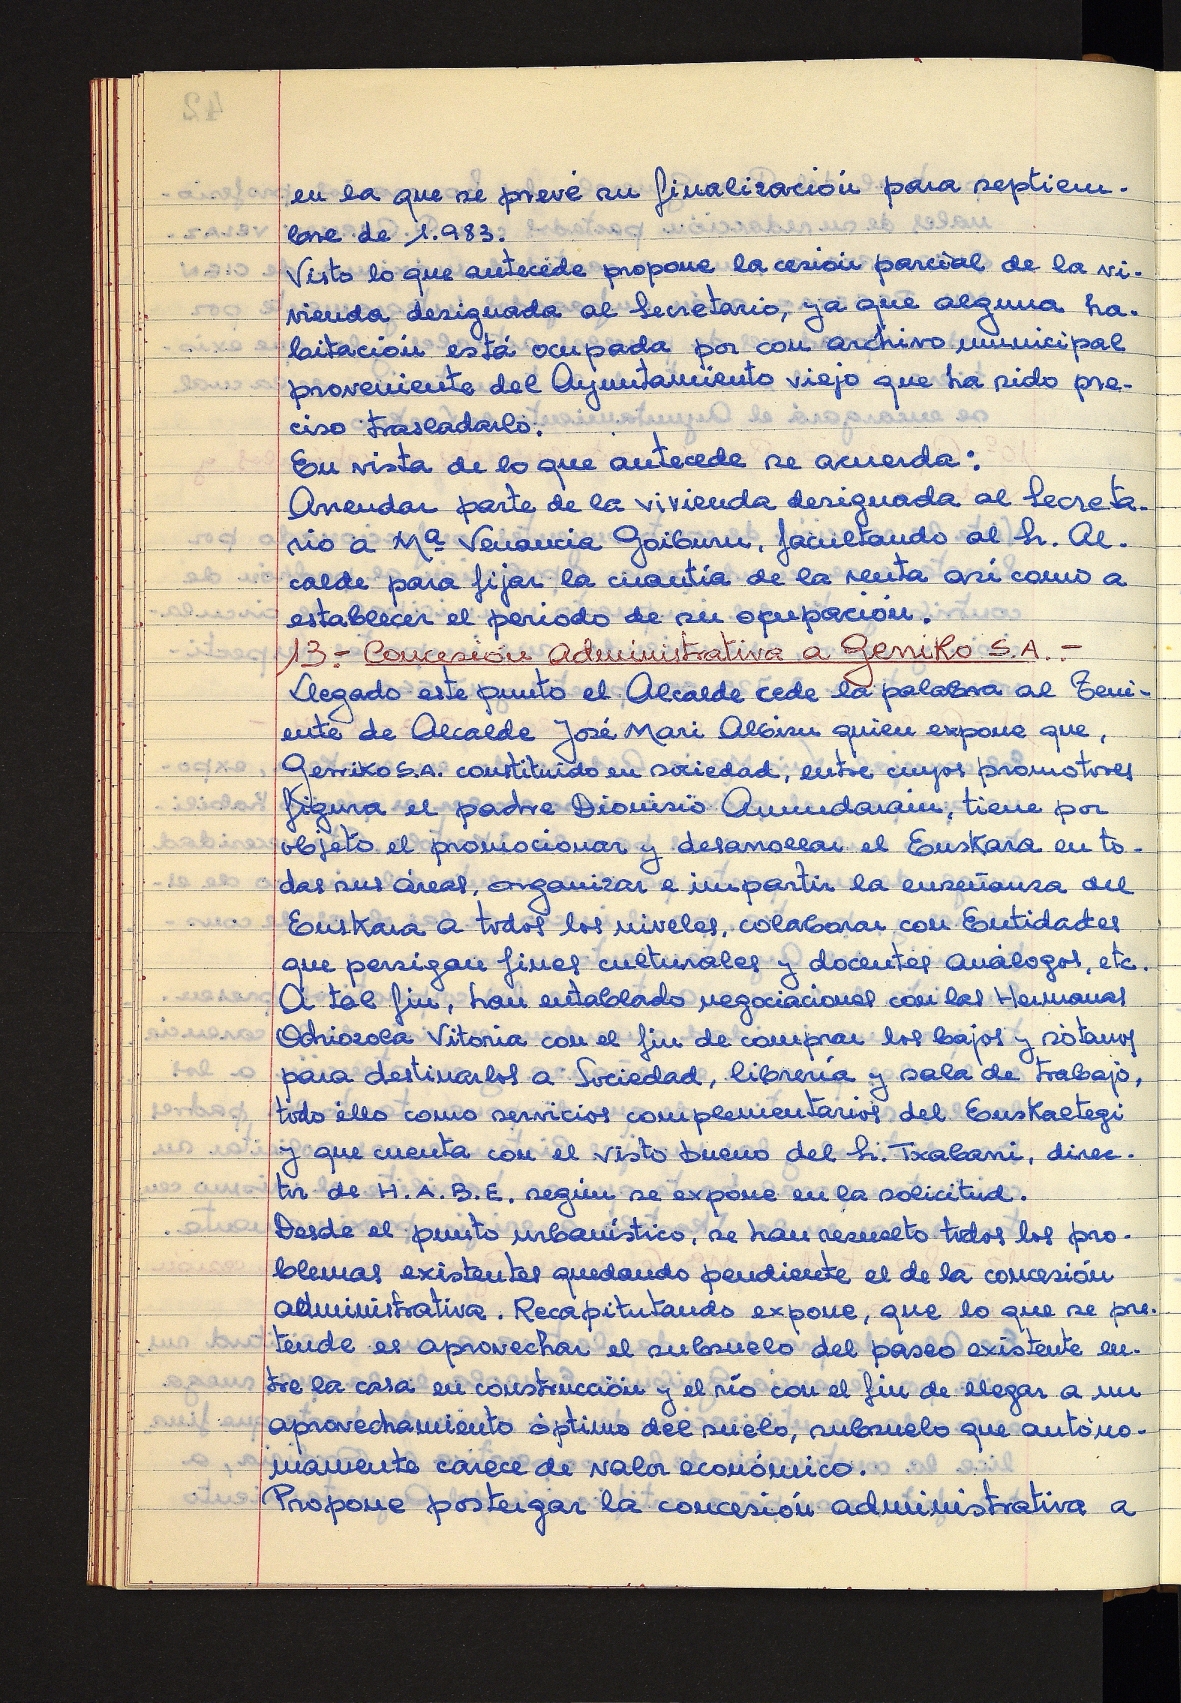 en la que se prevé su finalización para septiem-
bre de 1.983.
Visto lo que antecede propone la cesión parcial de la vi-
vienda designada al Secretario, ya que alguna ha-
bitación está ocupada por con archivo municipal
proveniente del Ayuntamiento viejo que ha sido pre-
ciso trasladarlo.
En vista de lo que antecede se acuerda:
Arrendar parte de la vivienda designada al Secreta-
rio a Mª Venancia Goiburu, facultando al Sr. Al-
calde para fijar la cuantía de la renta así como a
establecer el periodo de su ocupación.
13.- Concesión Administrativa a Gerriko S.A.-
Llegado este punto el Alcalde cede la palabra al Teni-
ente de Alcalde José Mari Albisu quien expone que,
Gerriko S.A. constituido en sociedad, entre cuyos promotores
figura el padre Dionisio Amundarain, tiene por
objeto el promocionar y desarrollar el Euskara en to-
das sus áreas, organizar e impartir la enseñanza del
Euskara a todos los niveles, colaborar con Entidades
que persigan fines culturales y docentes análogos, etc.
A tal fin, han entablado negociaciones con las Hermanas
Odriozola Vitoria con el fin de comprar los bajos y sótanos
para destinarlos a Sociedad, librería y sala de trabajo,
todo éllo como servicios complementarios del Euskaltegi
y que cuenta con el visto bueno del Sr. Txabarri, direc-
tor de H.A.B.E. según se expone en la solicitud.
Desde el punto urbanístico, se han resuelto todos los pro-
blemas existentes quedando pendiente el de la concesión
administrativa. Recapitutando expone, que lo que se pre-
tende es aprovechar el subsuelo del paseo existente en-
tre la casa en construcción y el río con el fin de llegar a un
aprovechamiento óptimo del suelo, subsuelo que autóno-
mamente carece de valor económico.
Propone postergar la concesión administrativa a
42